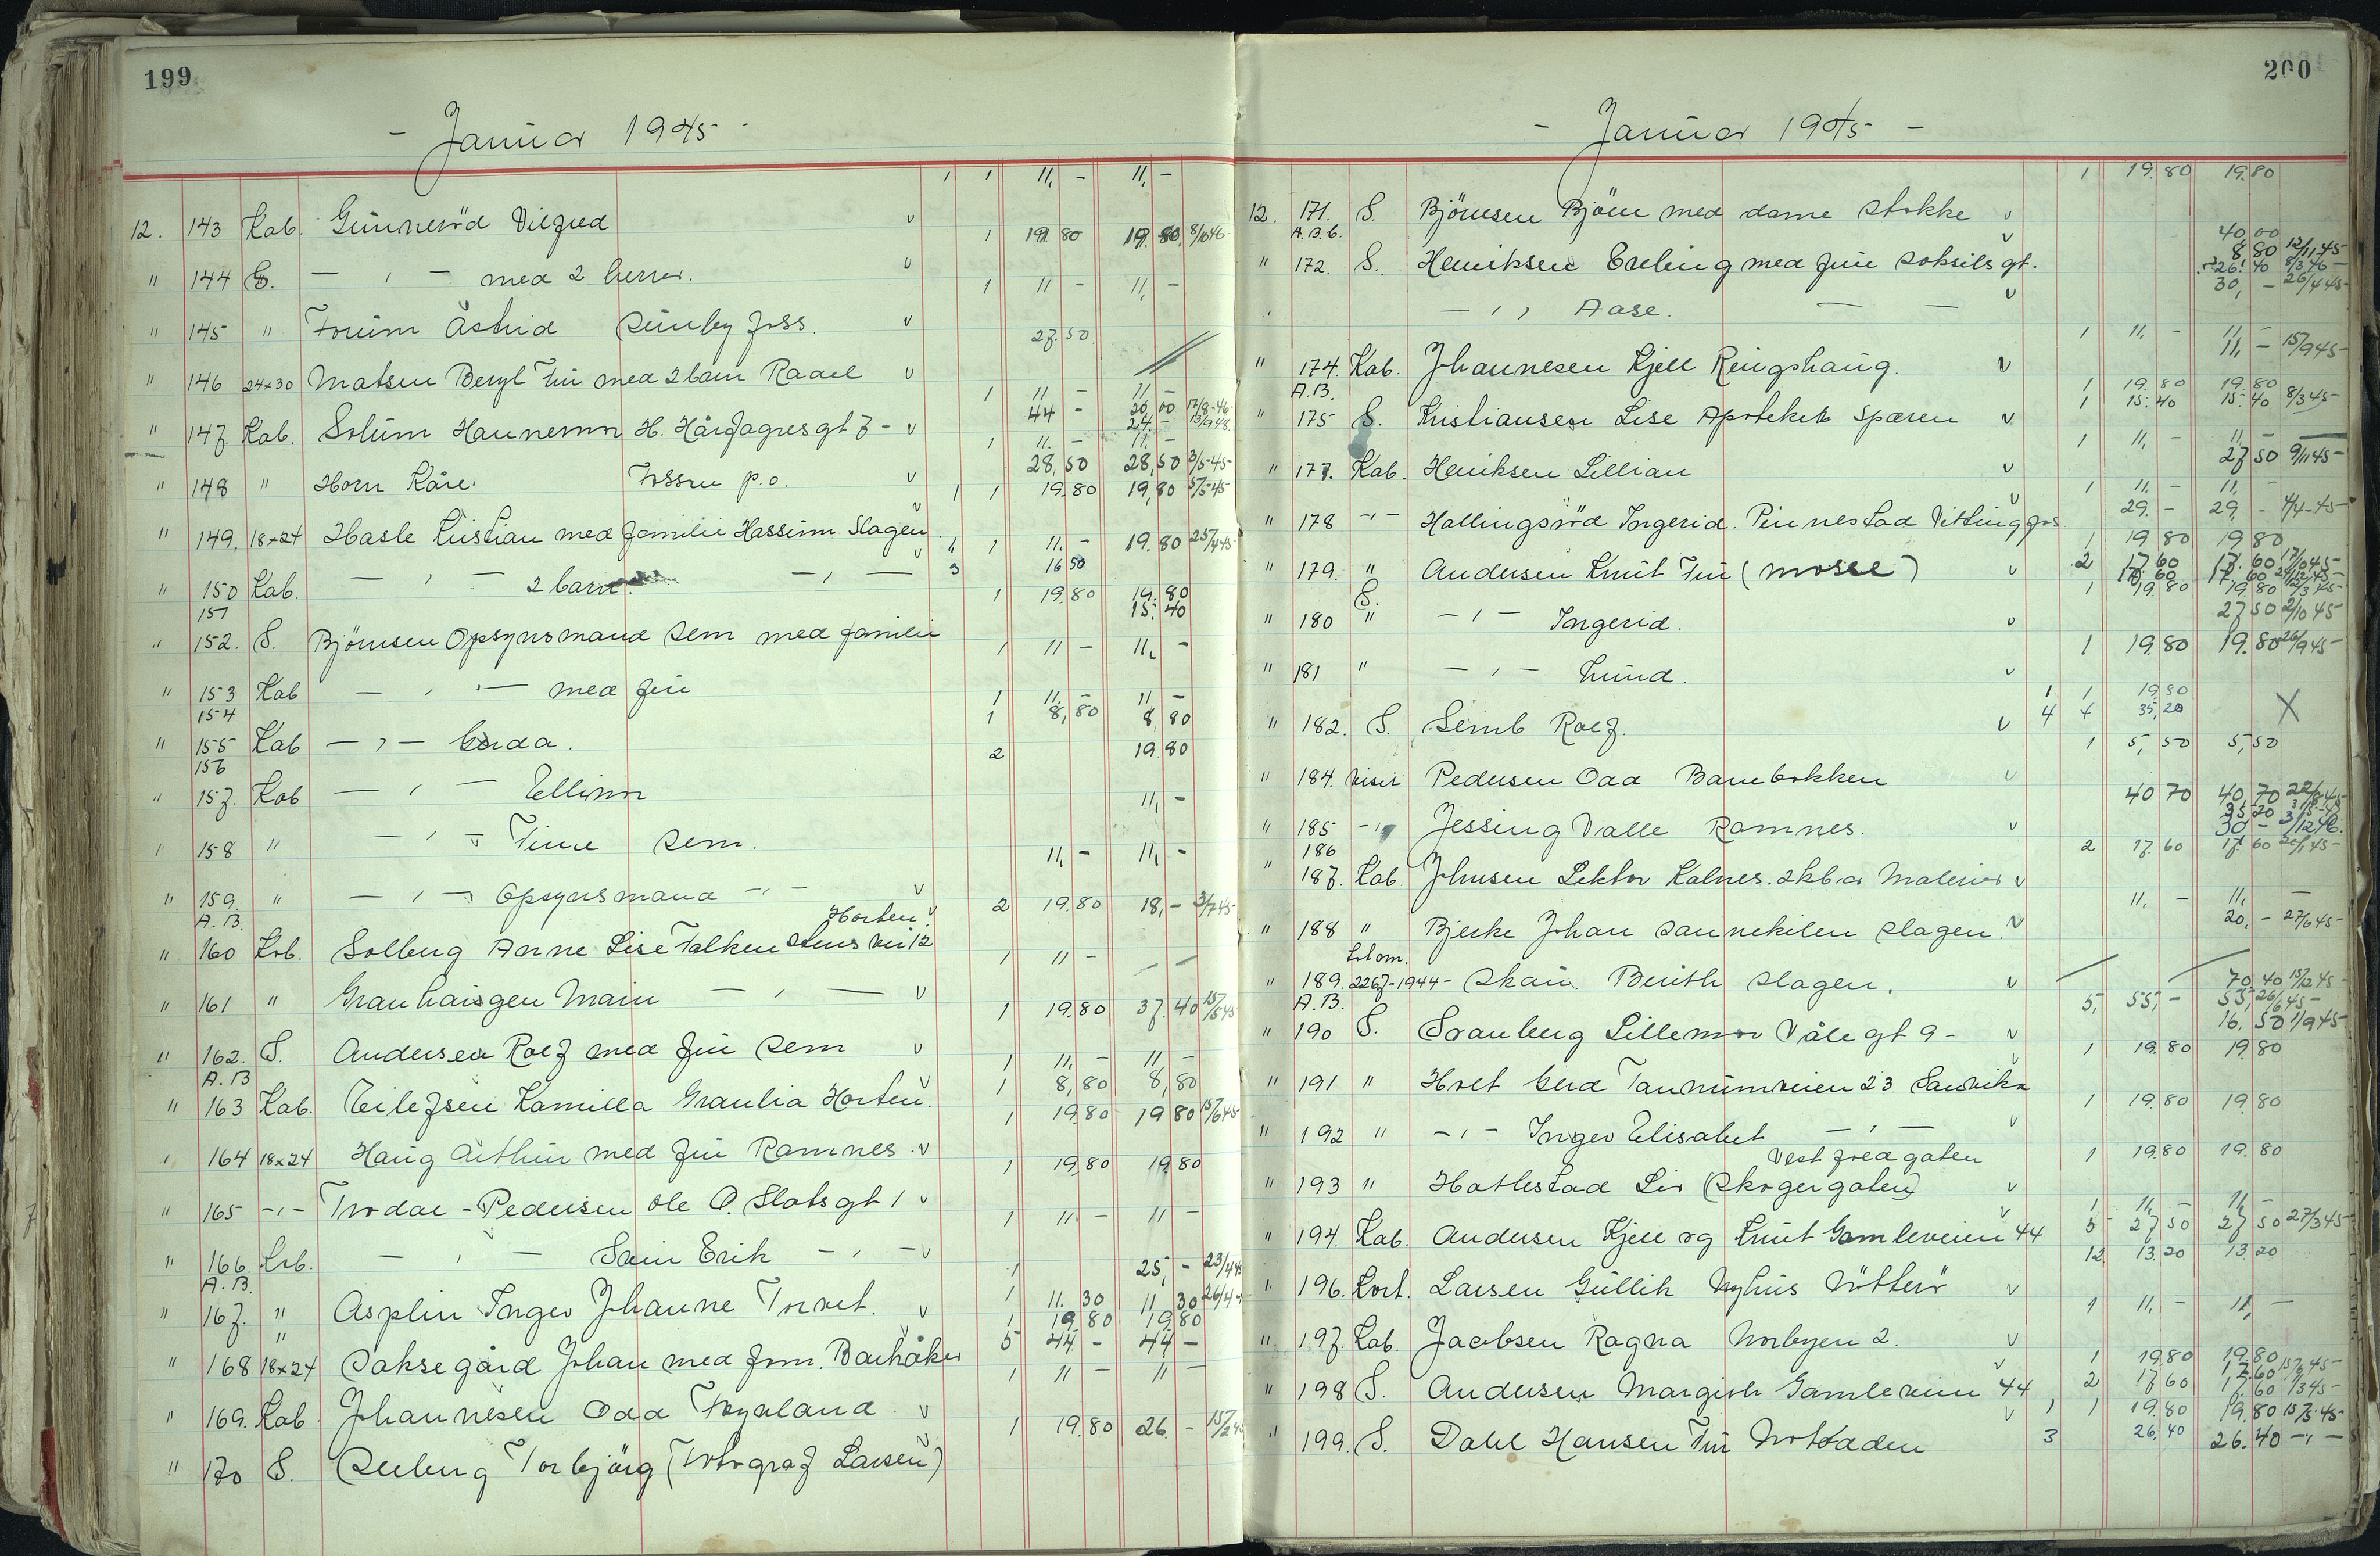 199
- Januar 1945 -
1 1 11,- 11,-
12. 143 Kab. Gunnerød Vilfred v
1 19.80 19.80 8/10 46
" 144 S. — " — med 2 herrer. v
1 11 - 11, -
" 145 " Forum Åstrid Sünby Foss. v
27.50
" 146 24x30 Matsen Beryl Fru med 2 barn Rael v
1 11 - 11 -
44 - 20,00 17/8-46
24 - 13/9 48
" 147 Kab. Solum Hannemor H. Hårfagresgt 7 - v
1 11. - 11. -
28,50 28,50 3/5-45
" 148 " Horn Kåre. Fossen p.o. v
1 1 19.80 19,80 5/5-45
" 149. 18x24 Hasle Kristian med familie Hassum Slagen v
" 1 11. - 19.80 25/4 45
3 16 50
" 150 Kab. — " — 2 barn. — " — v
151
1 19.80 19.80
15.40
" 152. S. Björnsen Opsynsmand Sem med familie
1 11 - 11, -
" 153 Kab — " — med fru
154
1 11. - 11 -
1 8,80 8,80
" 155 Kab — " — Gerda.
156
2 19 80
" 157. Kab — " — Ellinor
11, -
" 158 " — " — Tine Sem.
11, - 11, -
" 159. " — " — Opsynsmand — " — v
A.B. Horten v
2 19.80 18,- 3/7 45
" 160 Kab. Solberg Anne Lise Falkensteinsvei 12
1 11 -
" 161 " Granhaugen Main — " — v
1 19.80 37.40 15/5 45
" 162. S. Andersen Rolf med fru Sem v
A.B
1 11, - 11 -
1 8,80 8,80
" 163 Kab. Eilefsen Kamilla Granlia Horten. v
1 19.80 19 80 15/6 45
" 164 18x24 Haug Arthur med fru Ramnes. v
1 19,80 19.80
" 165 -"- Trodal-Pedersen Ole O. Slotsgt 1 v
1 11 - 11 -
" 166. Kab. — " — Svein Erik — " — v
A.B.
1 25,- 23/4 45
" 167. " Asplin Inger Johanne Torvet. v
"
1 11.30 11 30 26/4
1 19.80 19.80
5 44 - 44 -
" 168 18x24 Saksegård Johan med fam. Barkåker
1 11 - 11 -
" 169. Kab. Johannesen Odd Foynland v
1 19.80 26 - 15/2 45
" 170 S. Seeberg Torbjörg (Fotograf Larsen) v
200
- Januar 1945 -
1 19.80 19.80
12. 171. S. Björnsen Björn med dame Stokke v
A.B.C.
40,00
8,80 12/11 45
26.40 8/3 46
30,- 26/4 45
" 172. S. Henriksen Erling med fru Solsilsgt. v
— " — Aase. — — v
1 11, - 11, -
11, - 15/9 45
" 174. Kab. Johannesen Kjell Ringshaug. v
A.B.
1 19.80 19.80
1 15.40 15.40 8/3 45
" 175 S. Kristiansen Lise Apoteker Spæren v
1 11, - 11, -
27 50 9/11 45
" 177. Kab. Henriksen Lillian v
1 11. - 11. -
29. - 29, - 4/4-45
" 178 -"- Hallingsrød Ingerid. Pinnestad Vittingfos v
1 19 80 19 80
2 17.60 17.60 17/10 45
" 179. " Andersen Knut Fru (Mosse) v
S.
1 19.80 19.80
27 50 2/10 45
" 180 " — " — Ingerid. v
1 19.80 19.80 26/9 45
" 181 " — " — hund. v
1 1 19.80
4 4 35,20 X
" 182. S. Semb Rolf. v
1 5,50 5,50
" 184. Visit Pedersen Odd Banebakken v
40 70 40,70 22/8 45
35 20
30 - 3/12 46.
" 185 -"- Jessing Valle Ramnes. v
186
2 17.60 17.60 20/1 45
" 187. Kab. Johnsen Lektor Kalnes. 2 kb. av Malerier v
11. - 11, -
20, - 27/6 45
" 188 " Bjerke Johan Sannekilen Slagen. v
Kab om.
" 189. 2267-1944- Skau. Berith Slagen. v
A.B.
70,40 15/12 45
5, 55, - 55, 26/6 45
16,50 1/9 45
" 190 S. Svanberg Lillemor Vålegt 9 - v
1 19.80 19.80
" 191 " Holt Gerd Tanumveien 23 Sandvika v
1 19.80 19.80
" 192 " -"- Inger Elisabet — " — v
Vestfredgaten
1 19.80 19.80
" 193 " Hatlestad Liv (Skogergaten) v
1 11, - 11, -
5 27 50 27 50 27/3 45
" 194. Kab. Andersen Kjell og Knut Gamleveien 44 v
12 13.20 13.20
" 196. Kort. Larsen Gullik Nyhus Nøtterø v
1 11, - 11, -
" 197. Kab. Jacobsen Ragna Norbyen 2. v
1 19.80 19.80
2 17.60 17.60
" 198 S. Andersen Margith Gamleveien 44 v
1 1 19.80 19.80 15/5 45
3 26,40 26.40 -"-
" 199. S. Dahl Hansen Fru Notodden v